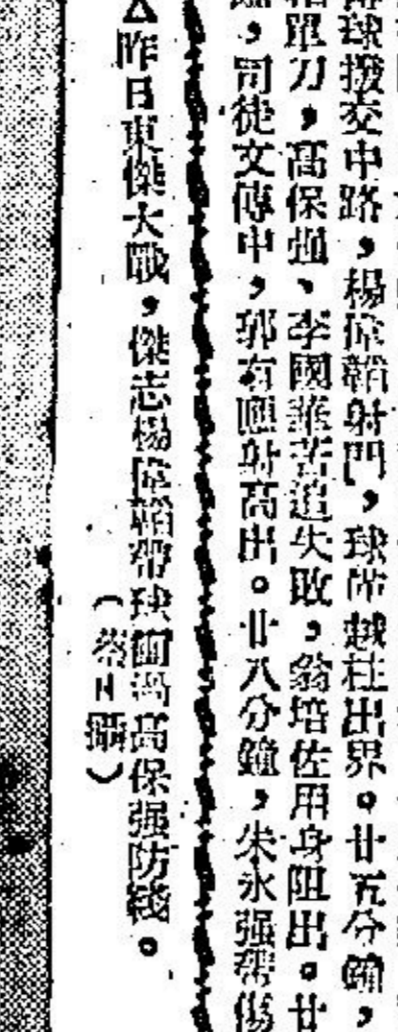 球撥交中路，楊偉韜射門，球帶越柱出界。廿五分鐘，
單刀，高保強、李國華苦追失敗，翁培佐用身阻出。廿
，司徒文傳中，郭有應射高出。廿八分鐘，朱永强帶傷
△昨日東傑大戰，傑志楊偉韜帶球衝過高保强防綫。
（蔡Z攝）